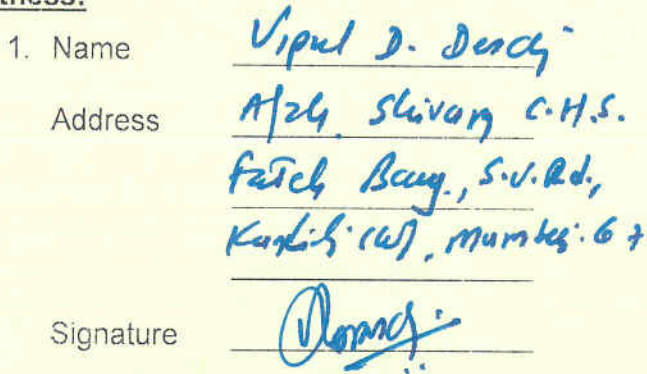 tness:
1. Name Vipul D. Desai
Address A/24, Shivam C.H.S.
Fateh Baug, S.V.Rd.,
Kandivli (W), Mumbai. 67
Signature